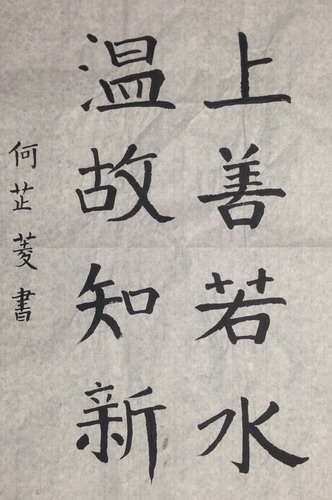 上善若水
温故知新
何芷菱書